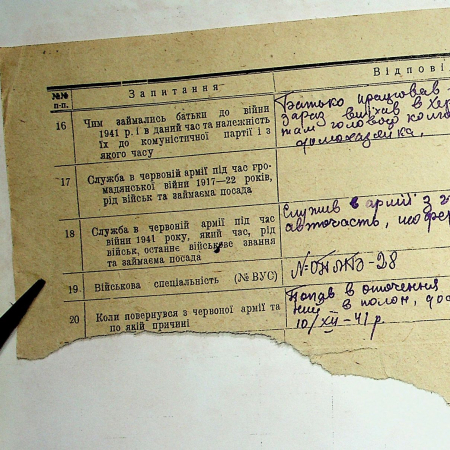 №№ п-п.
Запитання
Відпові
16
Чим займались батьки до війни
1941 р. і в даний час та належність
їх до комуністичної партії і з
якого часу
Батько працював
зараз виїхав в Хер
там головою кол
домохазяйка,
17
Служба в червоній армії під час гро-
мадянської війни 1917—22 років,
рід військ та займаєма посада
18
Служба в червоній армії під час
війни 1941 року, який час, рід
військ, останнє військове звання
та займаєма посада
Служив в армії з
авточасть,
19
Військова спеціальність (№ ВУС)
28
20
Коли повернувся з червоної армії та
по якій причині
Попав в оточення
в полон,
10/XII—41 р.